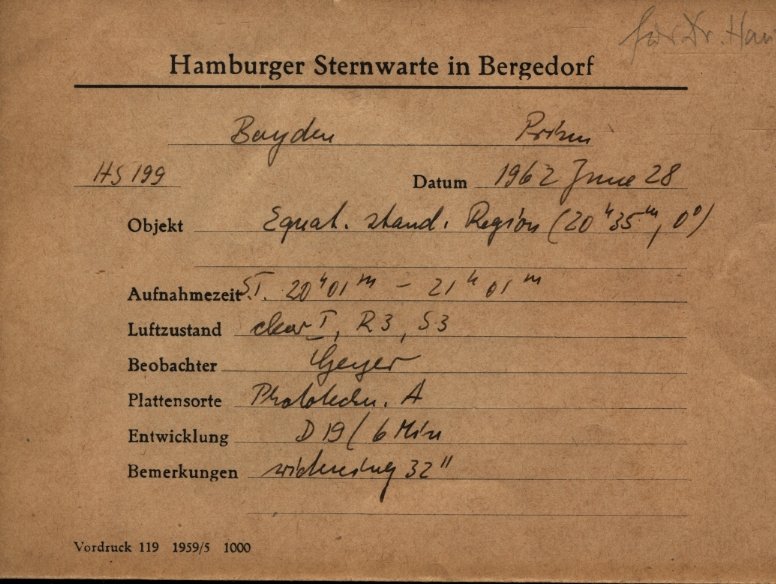 für Dr. Hau
Hamburger Sternwarte in Bergedorf
Boyden Prism
HS 199 Datum 1962 June 28
Objekt Equat. stand. Region (20ʰ35ᵐ, 0°)
Aufnahmezeit S.T. 20ʰ01ᵐ – 21ʰ01ᵐ
Luftzustand clear I, R3, S3
Beobachter Geyer
Plattensorte Phototechn. A
Entwicklung D19/6 Min
Bemerkungen widening 32"
Vordruck 119 1959/5 1000